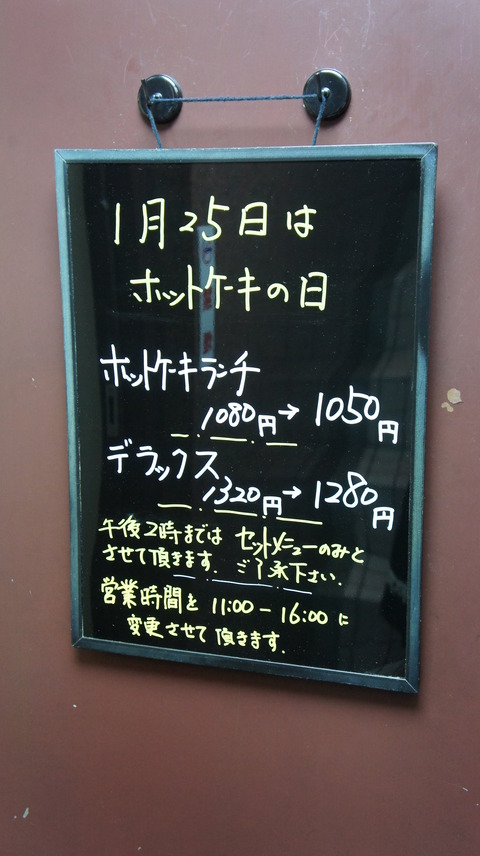 1月25日は
ホットケーキの日
ホットケーキランチ
1080円→1050円
デラックス
1320円→1280円
午後2時までは セットメニューのみと
させて頂きます。ご了承下さい。
営業時間を 11:00-16:00に
変更させて頂きます。